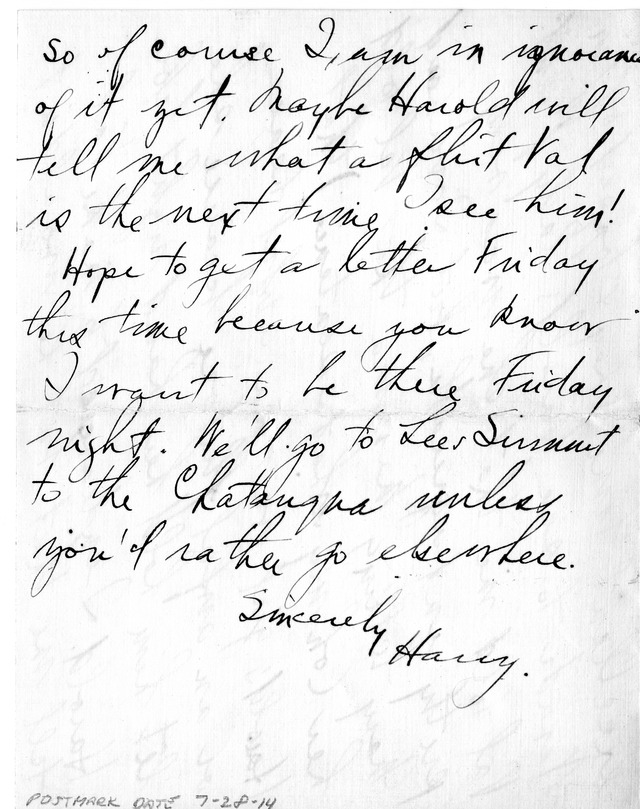 so of course I am in ignorance
of it yet. Maybe Harold will
tell me what a flirt Val
is the next time I see him!
Hope to get a letter Friday
this time because you know
I want to be there Friday
night. We'll go to Lees Summit
to the Chatauqua unless
you'd rather go elsewhere.
Sincerely
Harry.
POSTMARK DATE 7-28-14